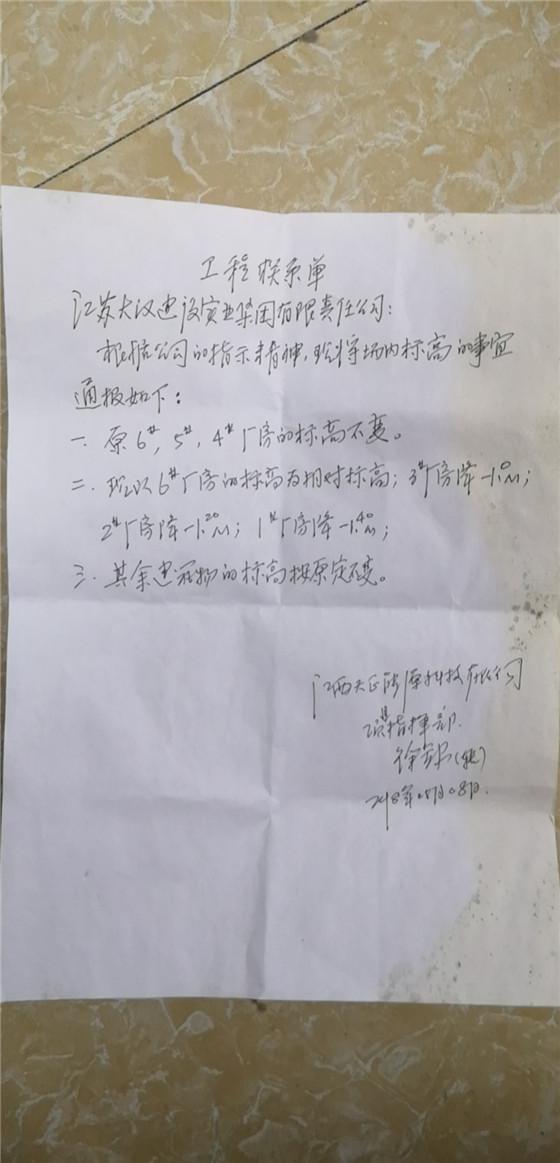 工程联系单
江苏大汉建设实业集团有限责任公司:
根据公司的指示精神,现将场内标高的事宜
通报如下:
一.原6#,5#,4#厂房的标高不变。
二.现以6#厂房的标高为相对标高;3#厂房降-1.0M;
2#厂房降-1.20M;1#厂房降-1.40M;
三.其余建筑物的标高按原定不变。
江西大正能源科技有限公司
指挥部.
徐